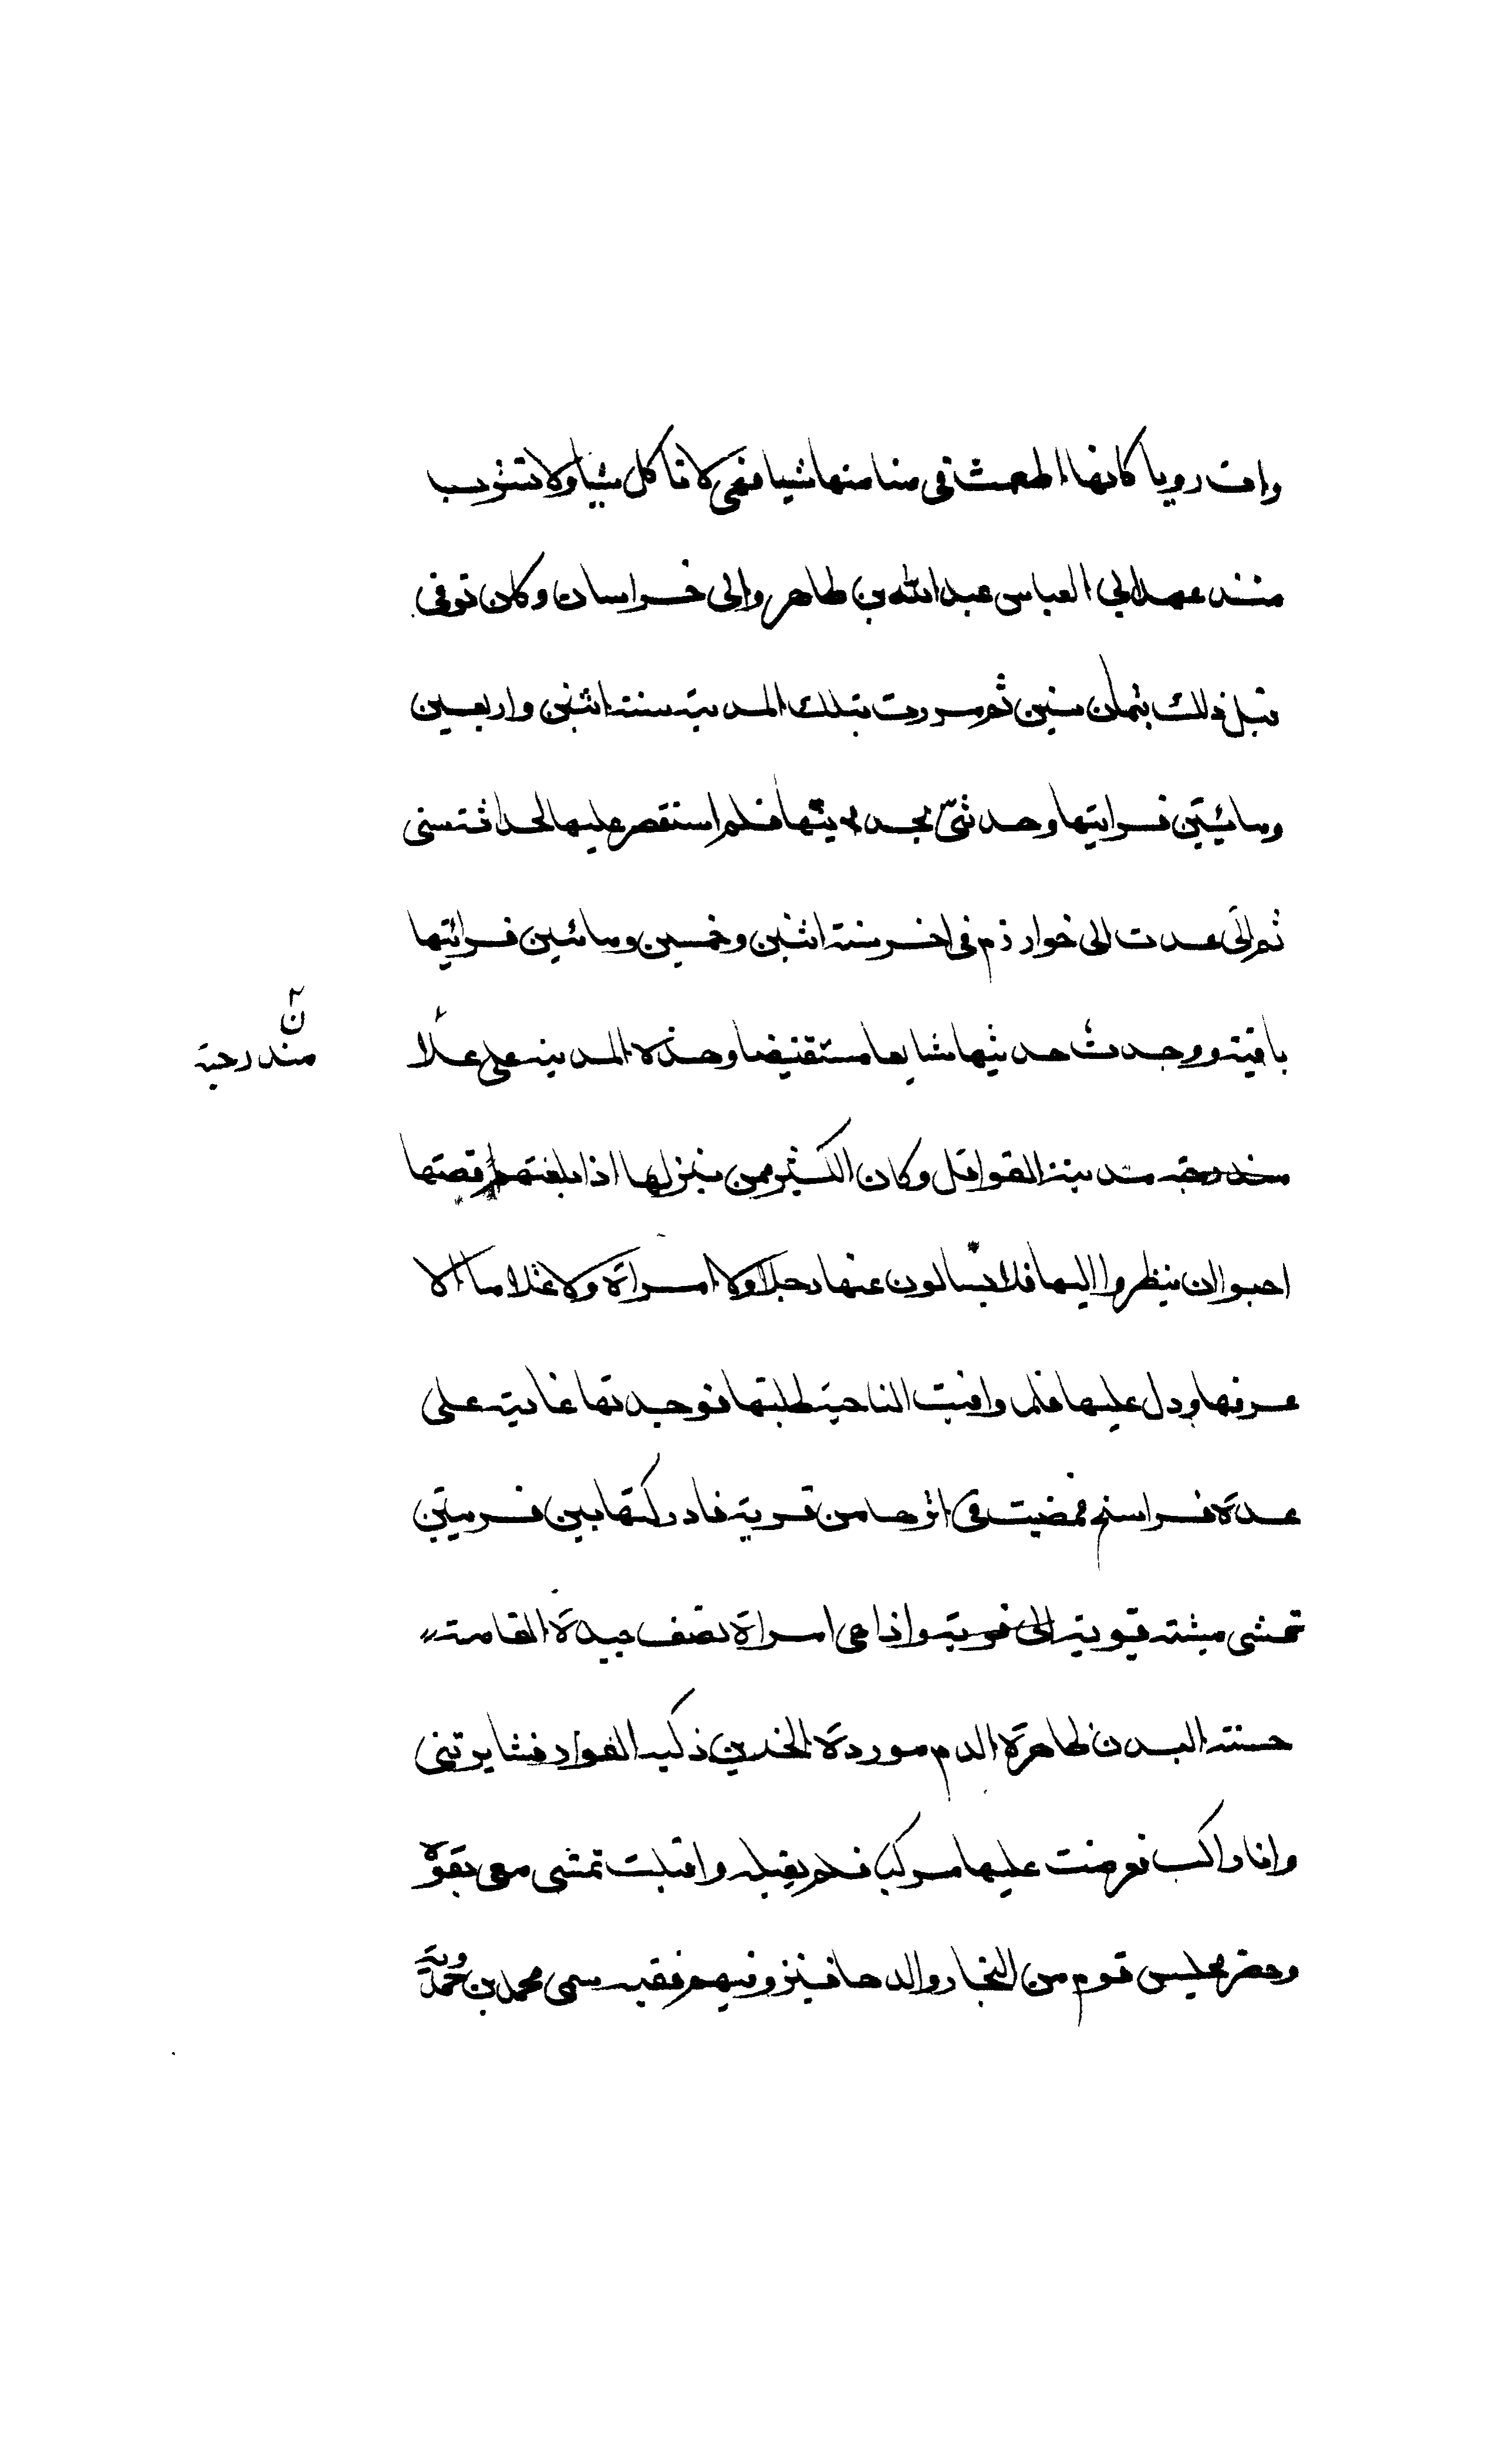 رات رويا كانها اطعمت في منامنها شيا فهي لا تاكل شيا ولا تشرب
منذ عهد ابي العباس عبد الله بن طاهر والى خراسان وكان توفى
قبل ذلك بثمان سنين ثم مررت بتلك المدينة سنة اثنين واربعين
ومائيتين فرايتها وحدثتني بحديثها فلم استقصر عليها لحداثة سنى
ثم انى عدت الى خوارزم في اخر سنة اثنين وخمسين ومائتين فرائيتها
باقية ووجدت حديثها شايعا مستفيضا وهذه المدينة على علا
ن
مندرحية
مندرجة مدينة القوافل وكان الكثير ممن ينزلها اذا بلغتهم قصتها
احبوا ان ينظروا اليها فلا يسالون عنها رجلا ولا امراة ولا غلاما الا
عرفها ودل عليها فلما وافيت الناحية طلبتها فوجدتها غايبة على
عدة فراسخ فمضيت في اثرها من قرية فادركتها بين قريتين
تمشى مشية قوية الى قرية واذا هي امراة نصف جيدة القامة
حسنة البدن ظاهرة الدم موردة الخدين ذكية الفواد فسايرتنى
وانا راكب فعرضت عليها مركبا فلم يقبله واقبلت تمشى معى بقوة
وحضر مجلسى قوم من التجار والدهاقين وفيهم فقيه سمى محمد بن حمدوية